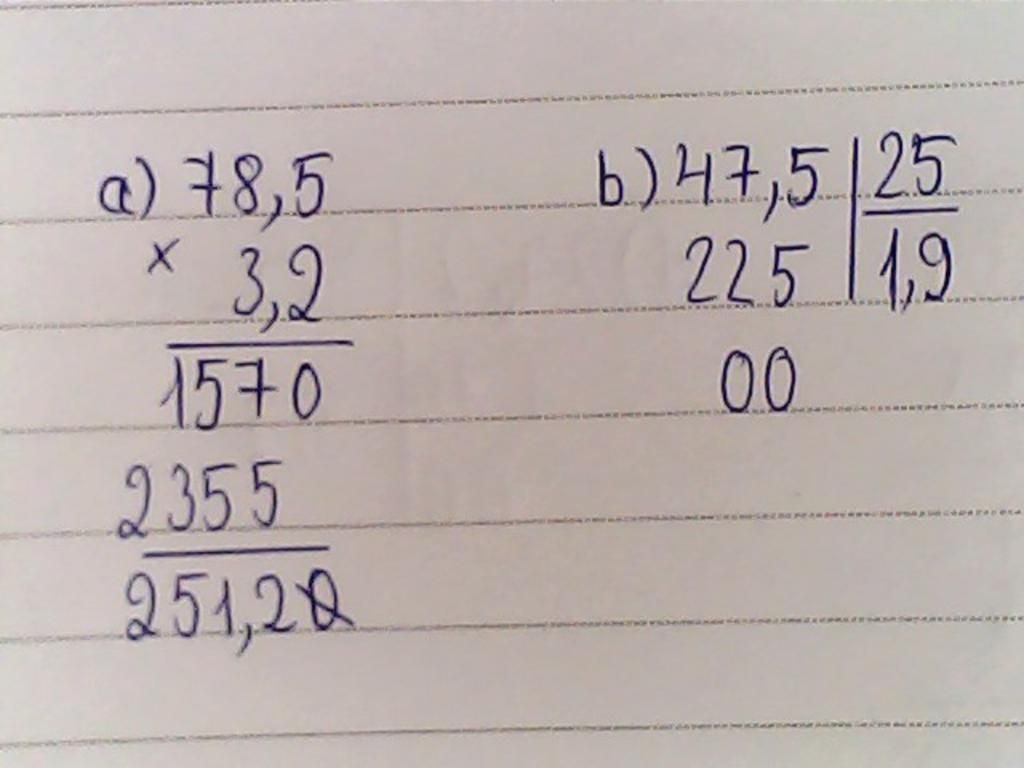 a) 78,5
x 3,2
1570
2355
251,20
b) 47,5 25
225 1,9
00